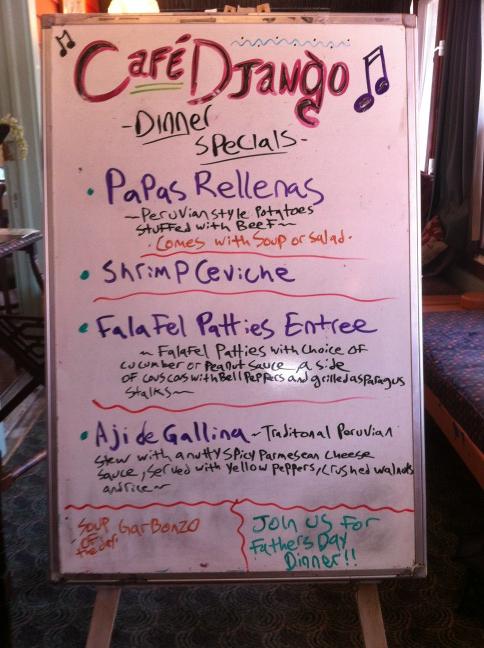 Café Django
-Dinner
Specials-
• Papas Rellenas
~Peruvian style Potatoes
stuffed with Beef~
·Comes with Soup or Salad·
• Shrimp Ceviche
• Falafel Patties Entree
~ Falafel Patties with choice of
cucumber or Peanut sauce, a side
of couscos with Bell Peppers and grilled asparagus
stalks~
• Aji de Gallina ~Traditonal Peruvian
stew with a nutty spicy Parmesean cheese
sauce, served with yellow peppers, crushed walnuts
and rice~
Soup Garbonzo
of
the day
Join us For
Fathers Day
Dinner!!